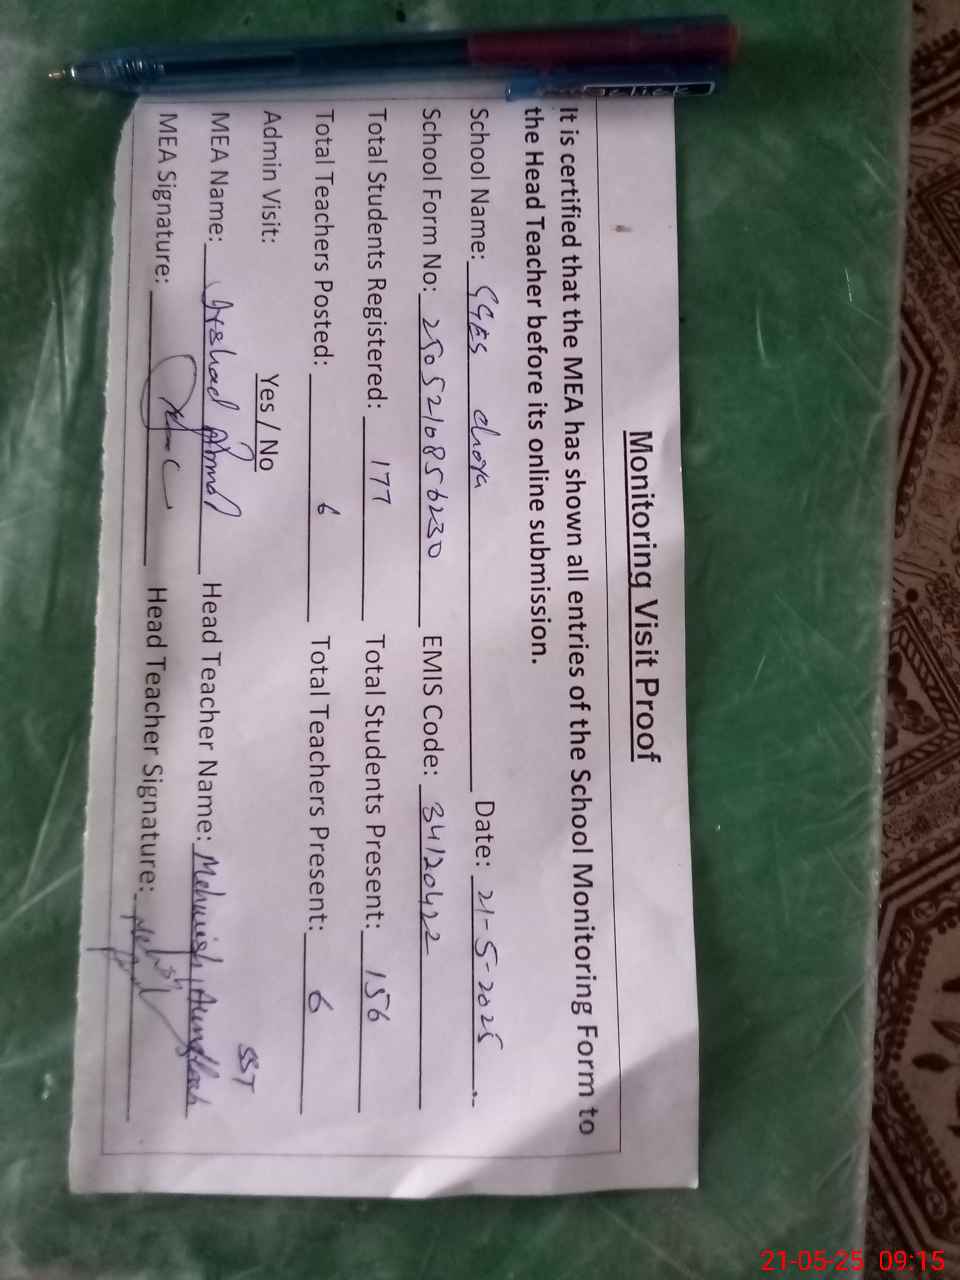 Monitoring Visit Proof
It is certified that the MEA has shown all entries of the School Monitoring Form to
the Head Teacher before its online submission.
School Name: GGES Date: 21-5-2025
School Form No: 2505210856230 EMIS Code: 34120422
Total Students Registered: 177 Total Students Present: 156
Total Teachers Posted: 6 Total Teachers Present: 6
Admin Visit: Yes / No SST
MEA Name: Irshad Ahmad Head Teacher Name: Mehwish
MEA Signature: Head Teacher Signature:
click
21-05-25 09:15